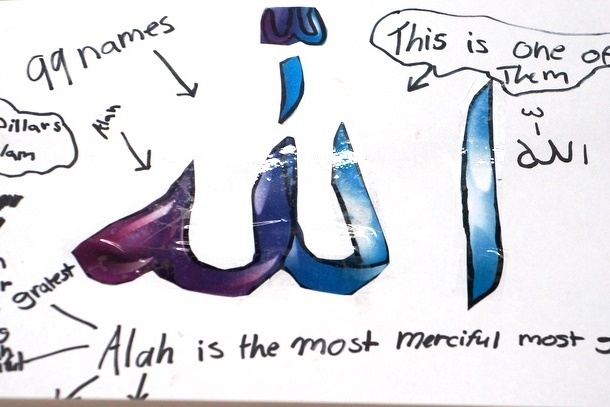 99 names
This is one of
Them
Pillars
lam
Alah
الله
الله
gratest
Alah is the most merciful most